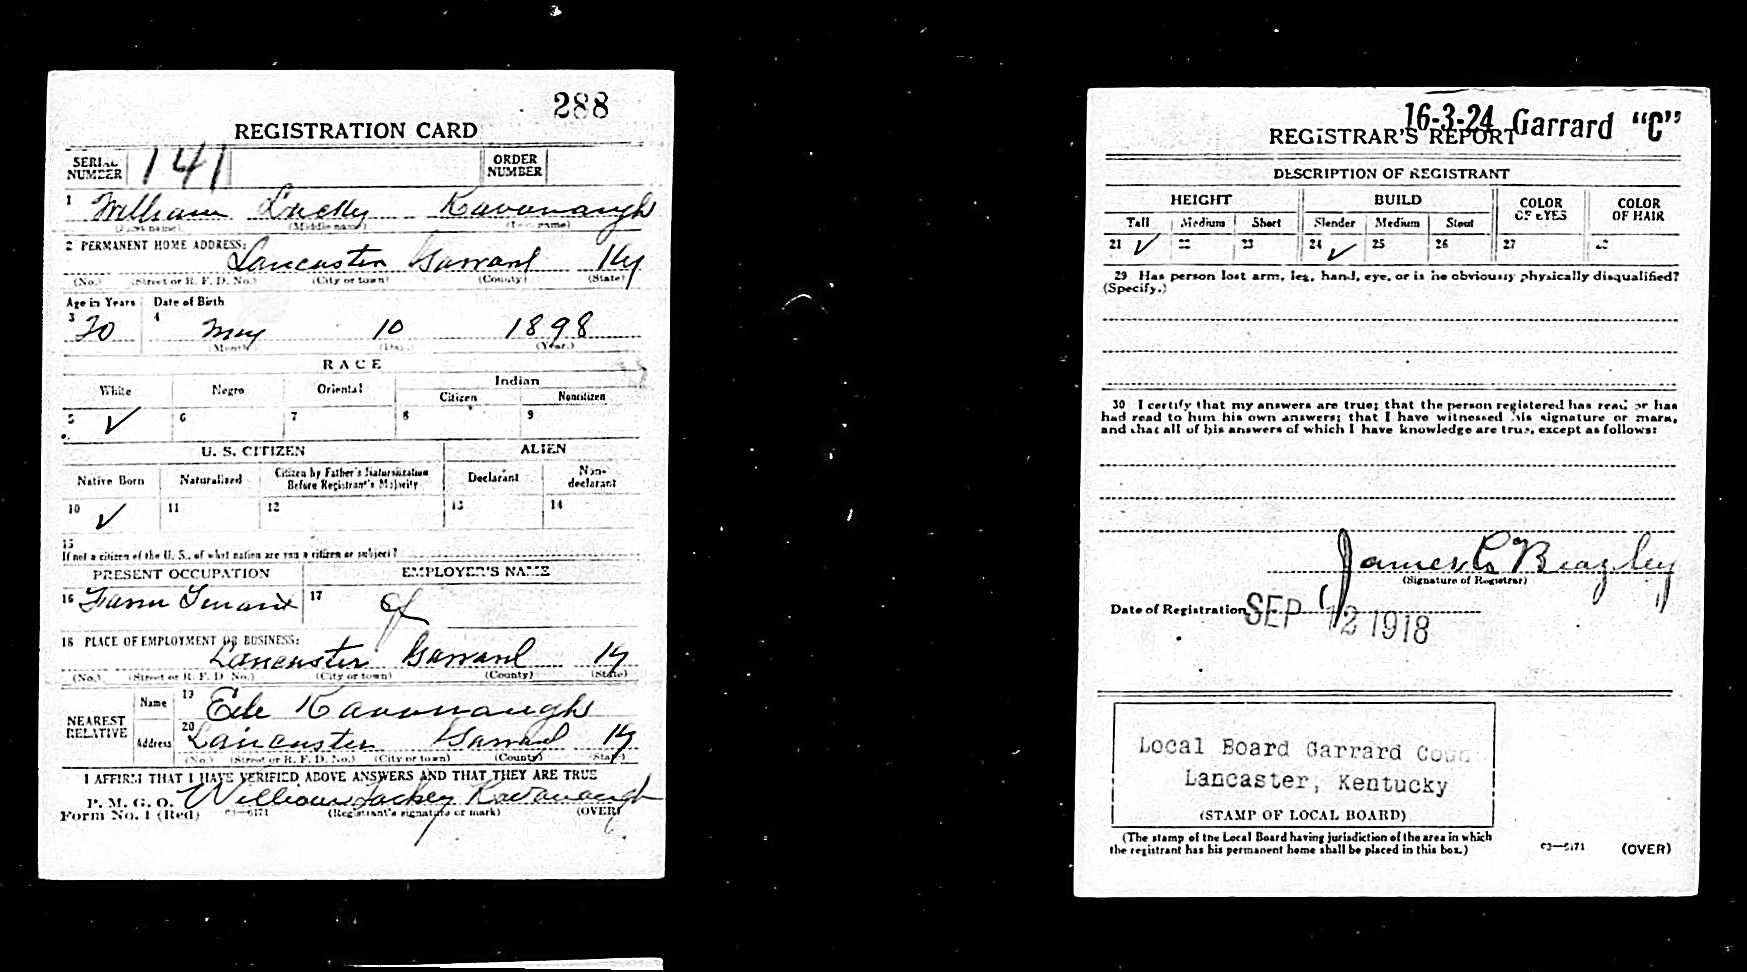 288
REGISTRATION CARD
SERIAL NUMBER 141 ORDER NUMBER
1 William Lackey Kavanaugh
(First name) (Middle name) (Last name)
2 PERMANENT HOME ADDRESS:
Lancaster Garrard Ky
(No.) (Street or R. F. D. No.) (City or town) (County) (State)
Age in Years Date of Birth
3 20 4 May 10 1898
(Month.) (Day.) (Year.)
RACE
White Negro Oriental Indian
Citizen Noncitizen
5 ✓ 6 7 8 9
U. S. CITIZEN ALIEN
Native Born Naturalized Citizen by Father's Naturalization Before Registrant's Majority Declarant Non-declarant
10 ✓ 11 12 13 14
15
If not a citizen of the U. S., of what nation are you a citizen or subject?
PRESENT OCCUPATION EMPLOYER'S NAME
16 Farm Tenant 17
18 PLACE OF EMPLOYMENT OR BUSINESS:
Lancaster Garrard Ky
(No.) (Street or R. F. D. No.) (City or town) (County) (State)
NEAREST RELATIVE Name 19 Kavanaugh
Address 20 Lancaster Garrard Ky
(No.) (Street or R. F. D. No.) (City or town) (County) (State)
I AFFIRM THAT I HAVE VERIFIED ABOVE ANSWERS AND THAT THEY ARE TRUE
P. M. G. O. William Lackey Kavanaugh
Form No. 1 (Red) 03—6171 (Registrant's signature or mark) (OVER)
16-3-24 Garrard "C"
REGISTRAR'S REPORT
DESCRIPTION OF REGISTRANT
HEIGHT BUILD COLOR OF EYES COLOR OF HAIR
Tall Medium Short Slender Medium Stout
21 ✓ 22 23 24 ✓ 25 26 27 28
29 Has person lost arm, leg, hand, eye, or is he obviously physically disqualified?
(Specify.)
30 I certify that my answers are true; that the person registered has read or has
had read to him his own answers; that I have witnessed his signature or mark,
and that all of his answers of which I have knowledge are true, except as follows:
James C Beazley
(Signature of Registrar)
Date of Registration SEP 12 1918
Local Board Garrard Coun
Lancaster, Kentucky
(STAMP OF LOCAL BOARD)
(The stamp of the Local Board having jurisdiction of the area in which
the registrant has his permanent home shall be placed in this box.)
03—6171 (OVER)